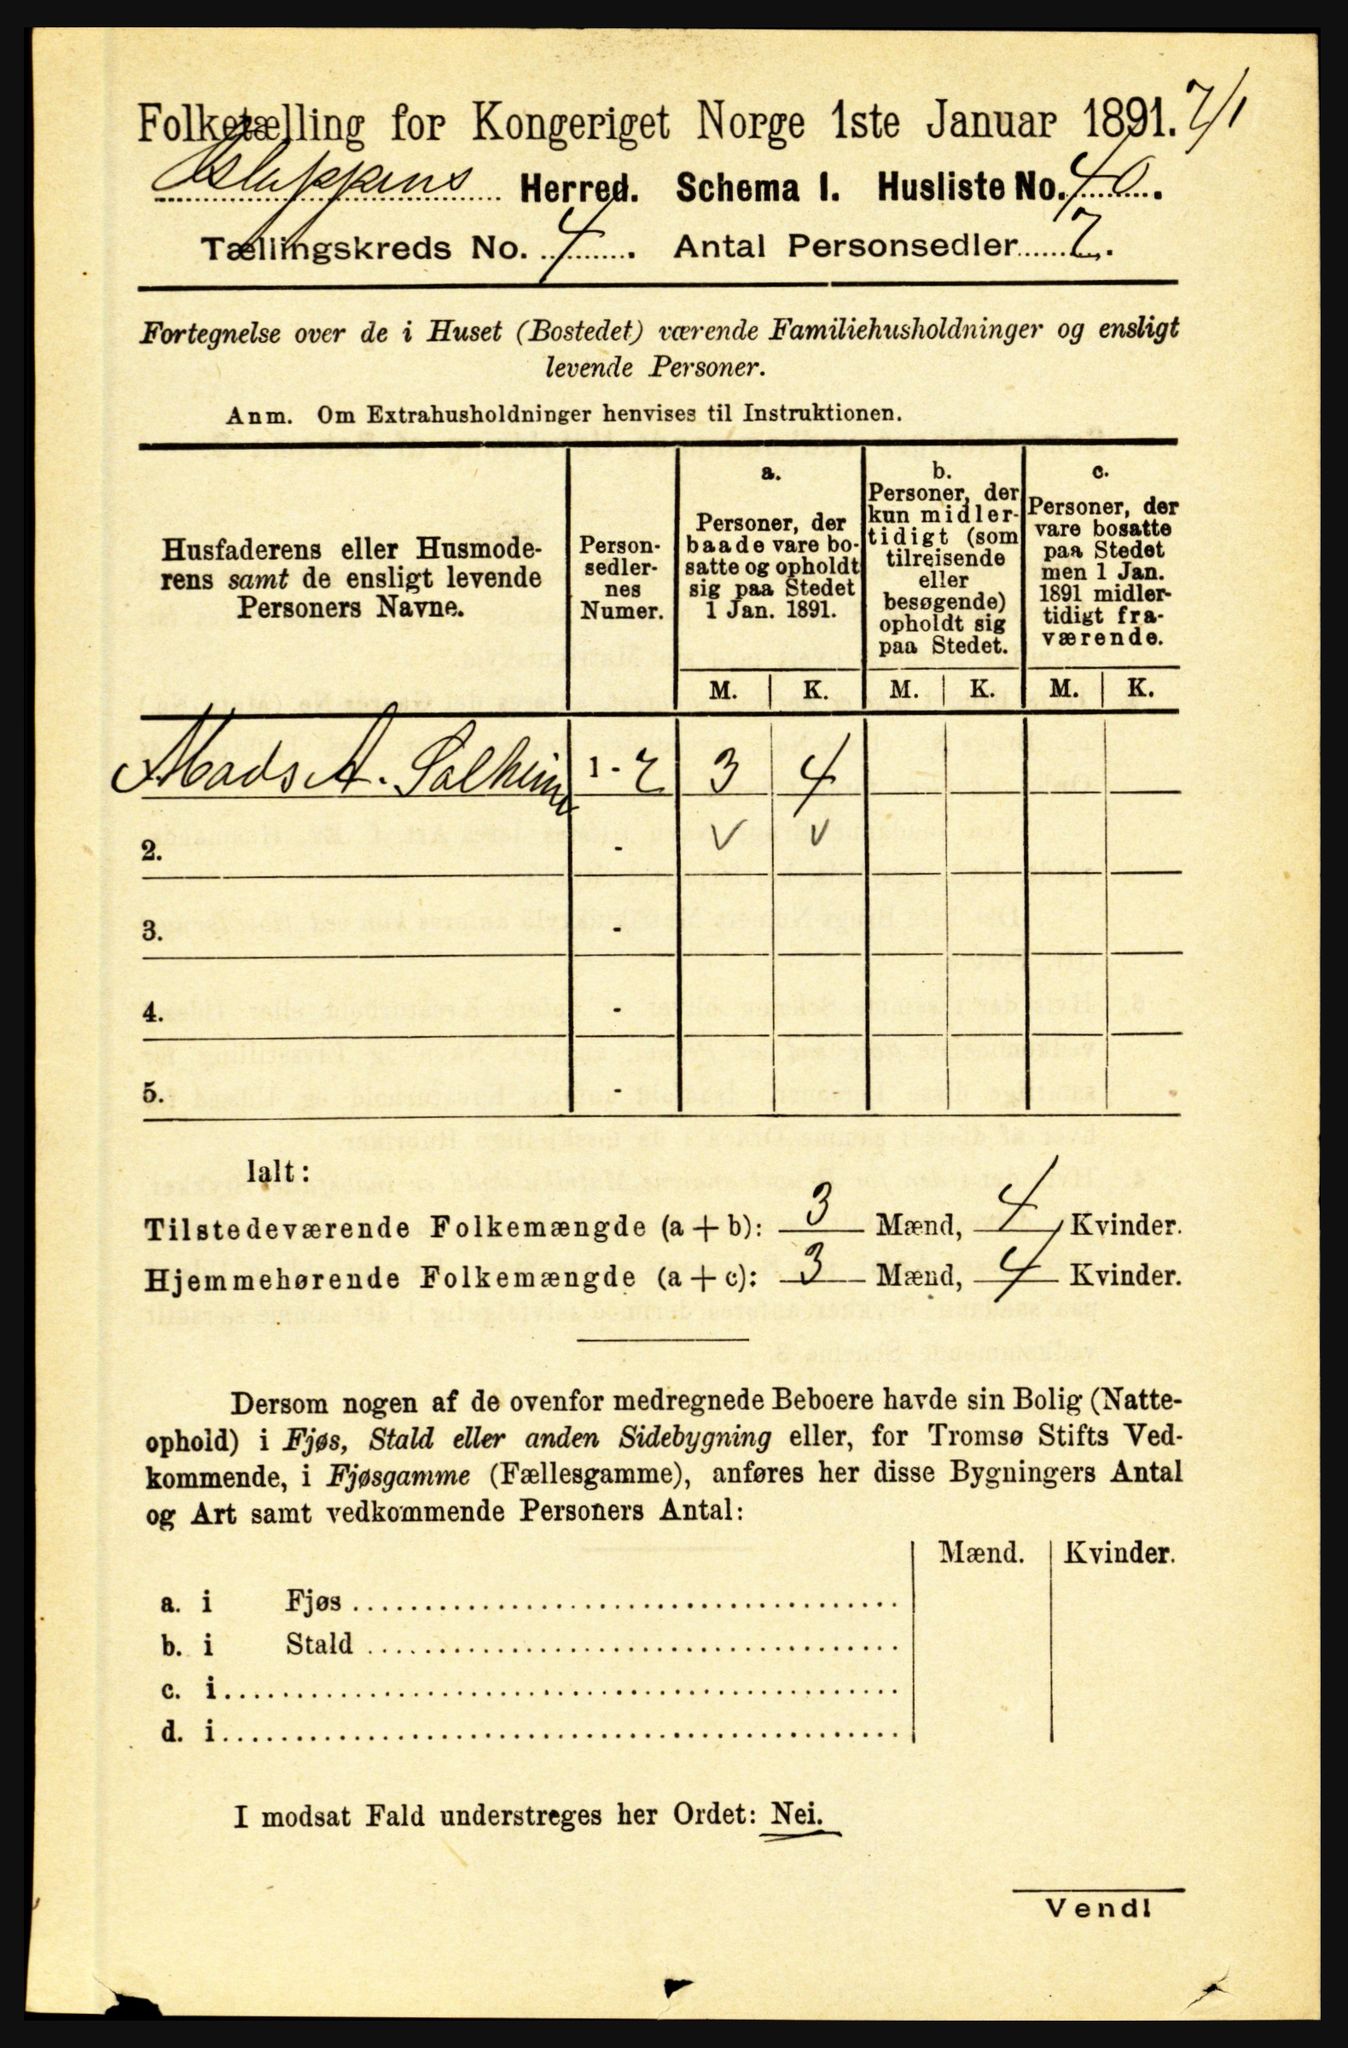 Folketælling for Kongeriget Norge 1ste Januar 1891. 7/1
Herred. Schema I. Husliste No. 40.
Tællingskreds No. 4. Antal Personsedler 7.
Fortegnelse over de i Huset (Bostedet) værende Familiehusholdninger og ensligt
levende Personer.
Anm. Om Extrahusholdninger henvises til Instruktionen.
Husfaderens eller Husmode-
rens samt de ensligt levende
Personers Navne.
Person-
sedler-
nes
Numer.
a.
Personer, der
baade vare bo-
satte og opholdt
sig paa Stedet
1 Jan. 1891.
b.
Personer, der
kun midler-
tidigt (som
tilreisende
eller
besøgende)
opholdt sig
paa Stedet.
c.
Personer, der
vare bosatte
paa Stedet
men 1 Jan.
1891 midler-
tidigt fra-
værende.
M. K. M. K. M. K.
Mads A. Solheim 1 - 7 3 4
2. - v v
3. -
4. -
5. -
Ialt:
Tilstedeværende Folkemængde (a + b): 3 Mænd, 4 Kvinder.
Hjemmehørende Folkemængde (a + c): 3 Mænd, 4 Kvinder.
Dersom nogen af de ovenfor medregnede Beboere havde sin Bolig (Natte-
ophold) i Fjøs, Stald eller anden Sidebygning eller, for Tromsø Stifts Ved-
kommende, i Fjøsgamme (Fællesgamme), anføres her disse Bygningers Antal
og Art samt vedkommende Personers Antal:
Mænd. Kvinder.
a. i Fjøs
b. i Stald
c. i
d. i
I modsat Fald understreges her Ordet: Nei.
Vend!